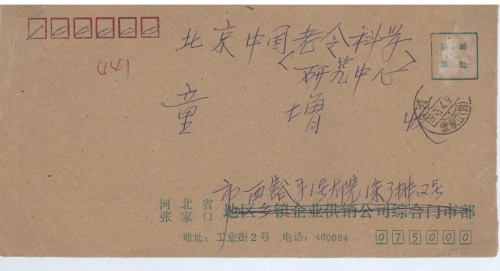 441
北京中国老令科学
<研究中心>
童 增 收
市西豁子1号大院1条3排12号
河北省
张家口
地区乡镇企业供销公司综合门市部
地址：工业街2号 电话：460094
075000